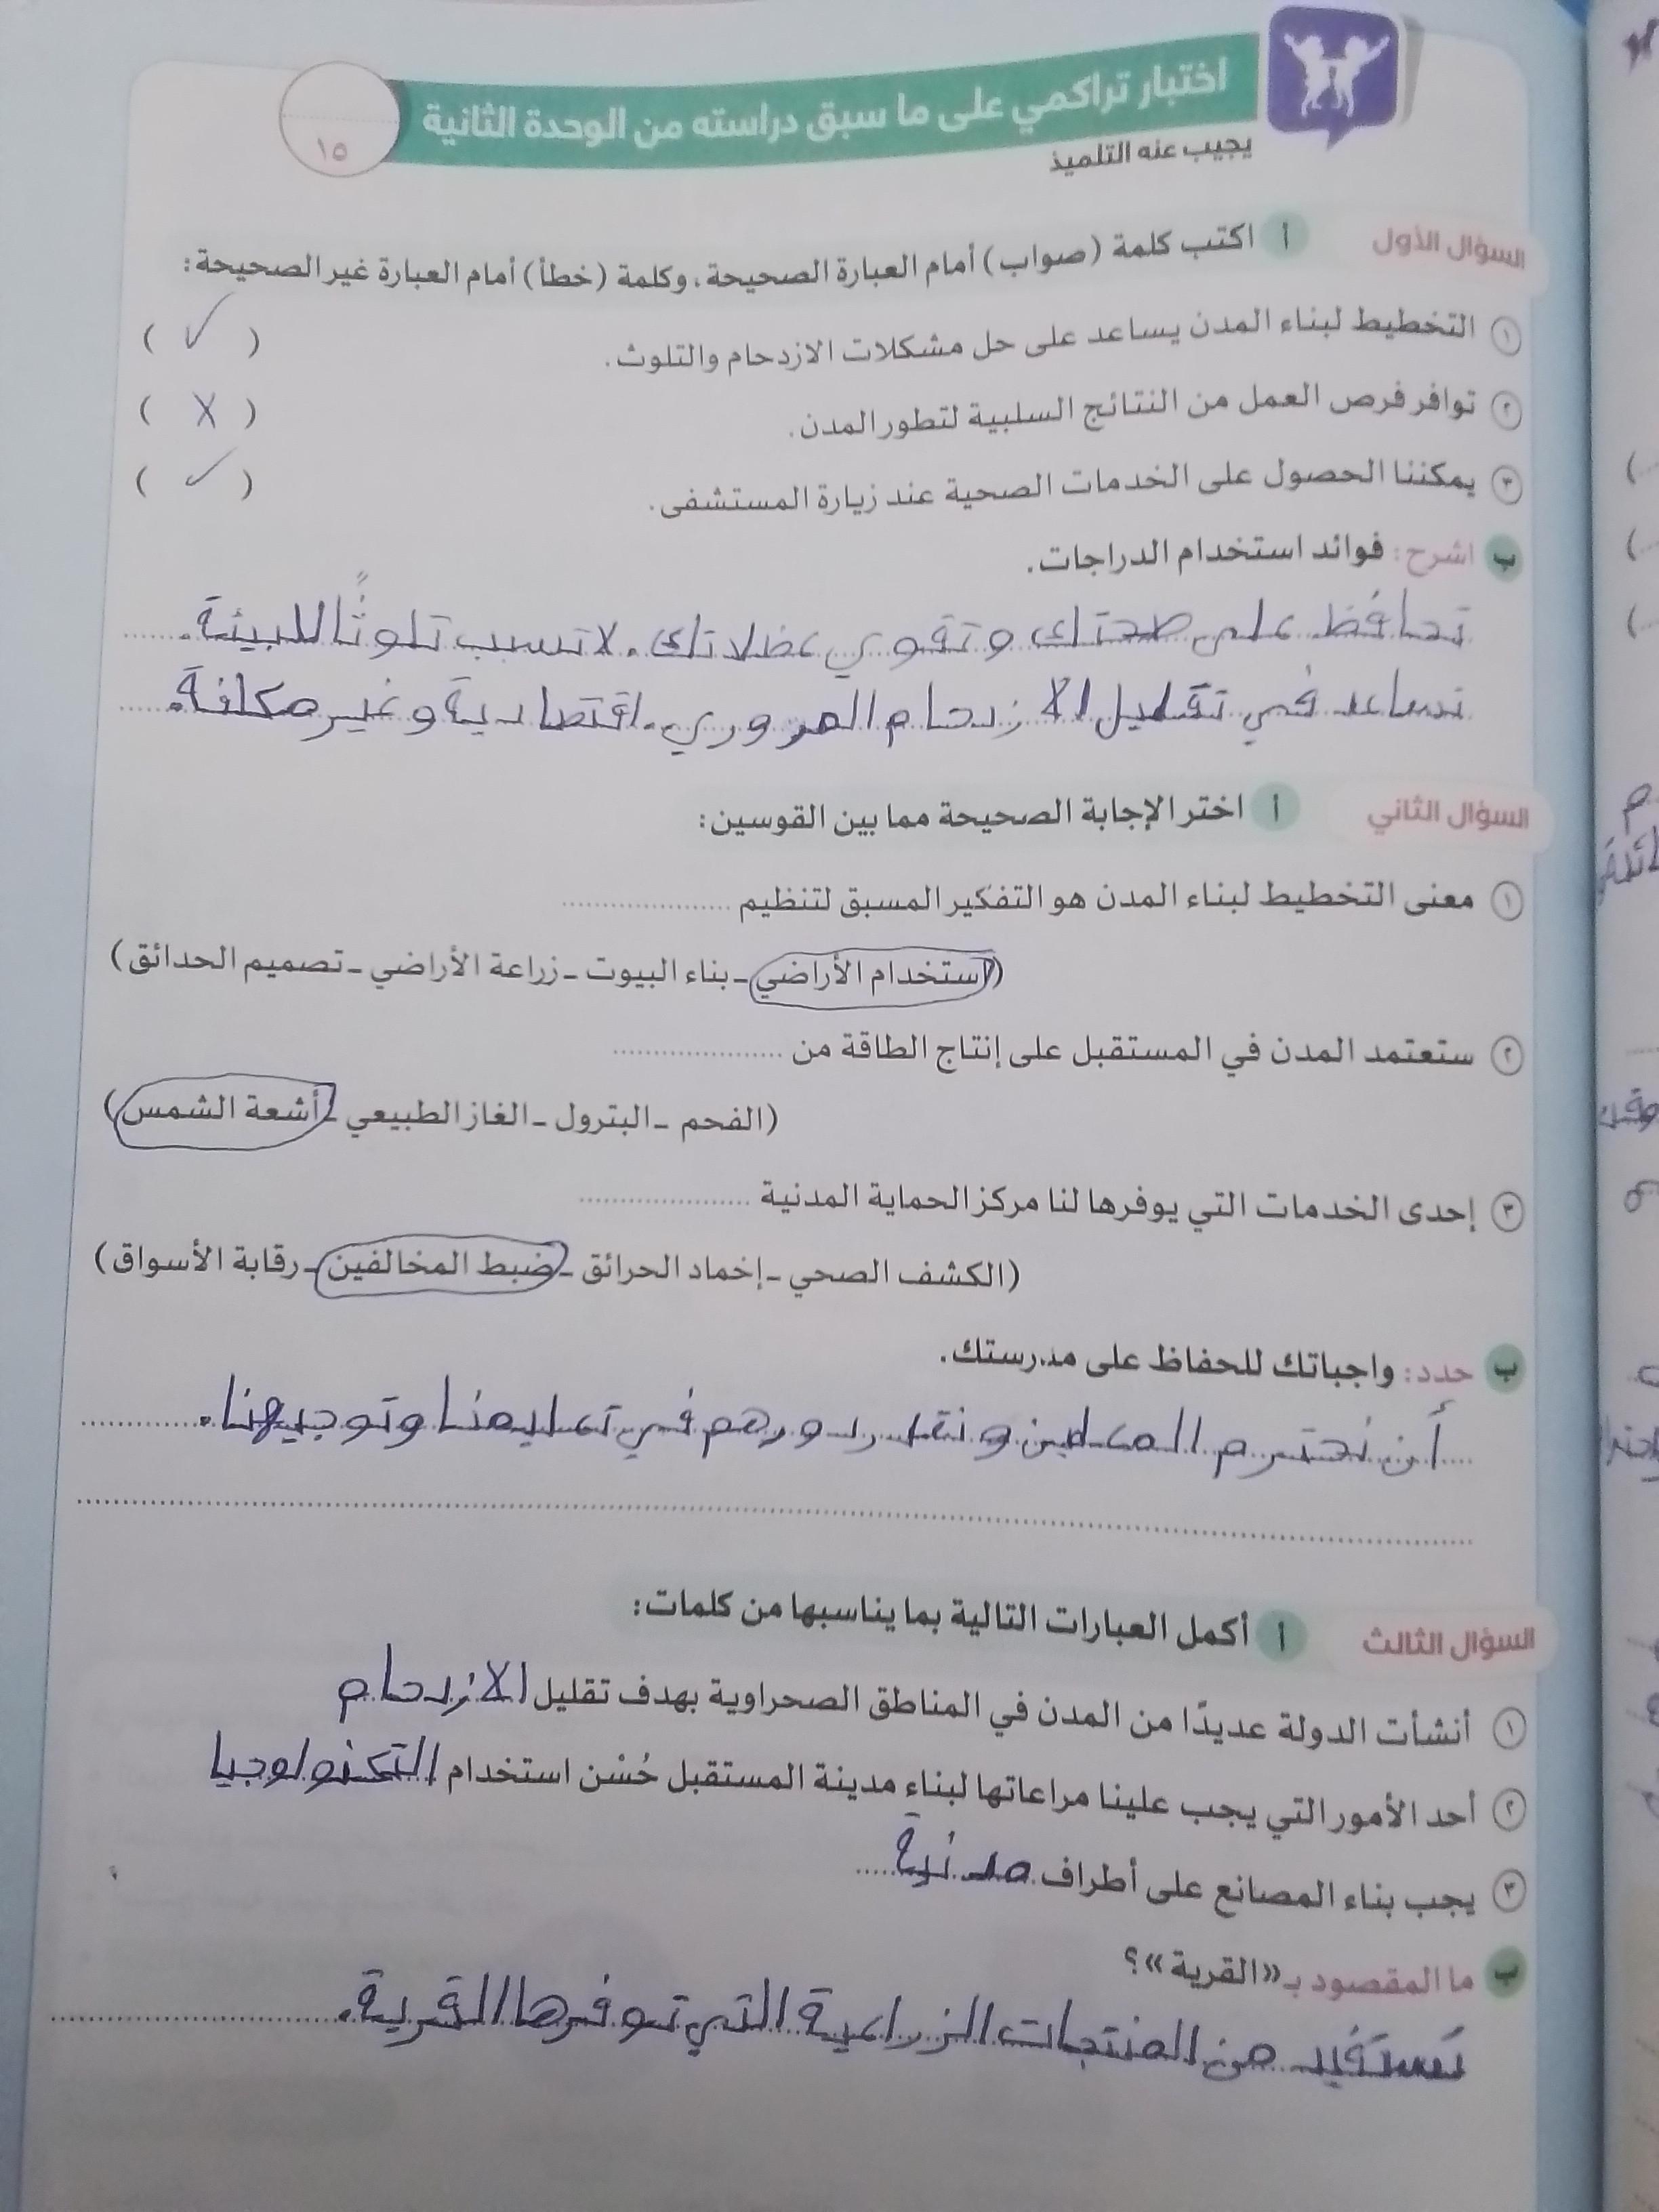 اختبار تراكمي على ما سبق دراسته من الوحدة الثانية
١٥
يجيب عنه التلميذ
السؤال الأول أ اكتب كلمة (صواب) أمام العبارة الصحيحة، وكلمة (خطأ) أمام العبارة غير الصحيحة:
١ التخطيط لبناء المدن يساعد على حل مشكلات الازدحام والتلوث. ( ✓ )
٢ توافر فرص العمل من النتائج السلبية لتطور المدن. ( X )
٣ يمكننا الحصول على الخدمات الصحية عند زيارة المستشفى. ( ✓ )
ب اشرح: فوائد استخدام الدراجات.
تحافظ على صحتك وتقوي عضلاتك. لا تسبب تلوثًا للبيئة.
تساعد في تقليل الازدحام المروري. اقتصادية وغير مكلفة.
السؤال الثاني أ اختر الإجابة الصحيحة مما بين القوسين:
١ معنى التخطيط لبناء المدن هو التفكير المسبق لتنظيم ....................
(استخدام الأراضي - بناء البيوت - زراعة الأراضي - تصميم الحدائق)
٢ ستعتمد المدن في المستقبل على إنتاج الطاقة من ....................
(الفحم - البترول - الغاز الطبيعي - أشعة الشمس)
٣ إحدى الخدمات التي يوفرها لنا مركز الحماية المدنية ....................
(الكشف الصحي - إخماد الحرائق - ضبط المخالفين - رقابة الأسواق)
ب حدد: واجباتك للحفاظ على مدرستك.
أن نحترم المعلمين ونقدر دورهم في تعليمنا وتوجيهنا.
السؤال الثالث أ أكمل العبارات التالية بما يناسبها من كلمات:
١ أنشأت الدولة عديدًا من المدن في المناطق الصحراوية بهدف تقليل الازدحام
٢ أحد الأمور التي يجب علينا مراعاتها لبناء مدينة المستقبل حُسْن استخدام التكنولوجيا
٣ يجب بناء المصانع على أطراف مدنية
ب ما المقصود بـ «القرية»؟
تستفيد من المنتجات الزراعية التي توفرها القرية.